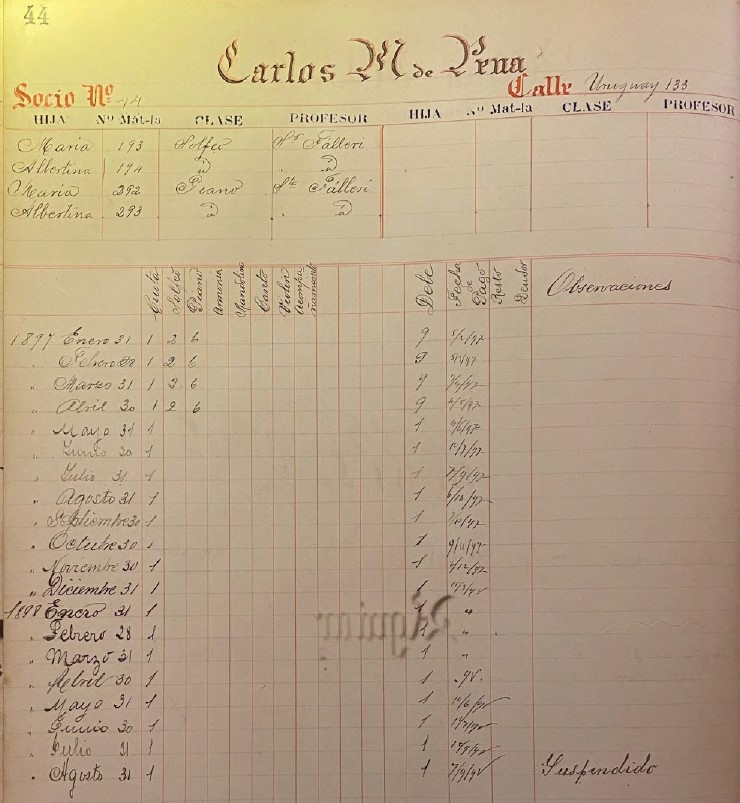 44
Carlos M de Pena
Socio Nº 44 Calle Uruguay 133
HIJA Nº Mat-la CLASE PROFESOR HIJA Nº Mat-la CLASE PROFESOR
Maria 193 Solfeo Falleri
Albertina 194 " "
Maria 292 Piano Falleri
Albertina 293 " "
Cuota Solfeo Piano Armonia Mandolino Canto Violin Acompañamiento Debe Fecha de Pago Resto Deudor Observaciones
1897 Enero 31 1 2 6 9
" Febrero 28 1 2 6 9
" Marzo 31 1 2 6 9
" Abril 30 1 2 6 9
" Mayo 31 1 1
" Junio 30 1 1
" Julio 31 1 1
" Agosto 31 1 1
" Septiembre 30 1 1
" Octubre 30 1 1 9/11/97
" Noviembre 30 1 1
" Diciembre 31 1 1
1898 Enero 31 1 1 "
" Febrero 28 1 1 "
" Marzo 31 1 1 "
" Abril 30 1 1
" Mayo 31 1 1
" Junio 30 1 1
" Julio 31 1 1
" Agosto 31 1 1 Suspendido